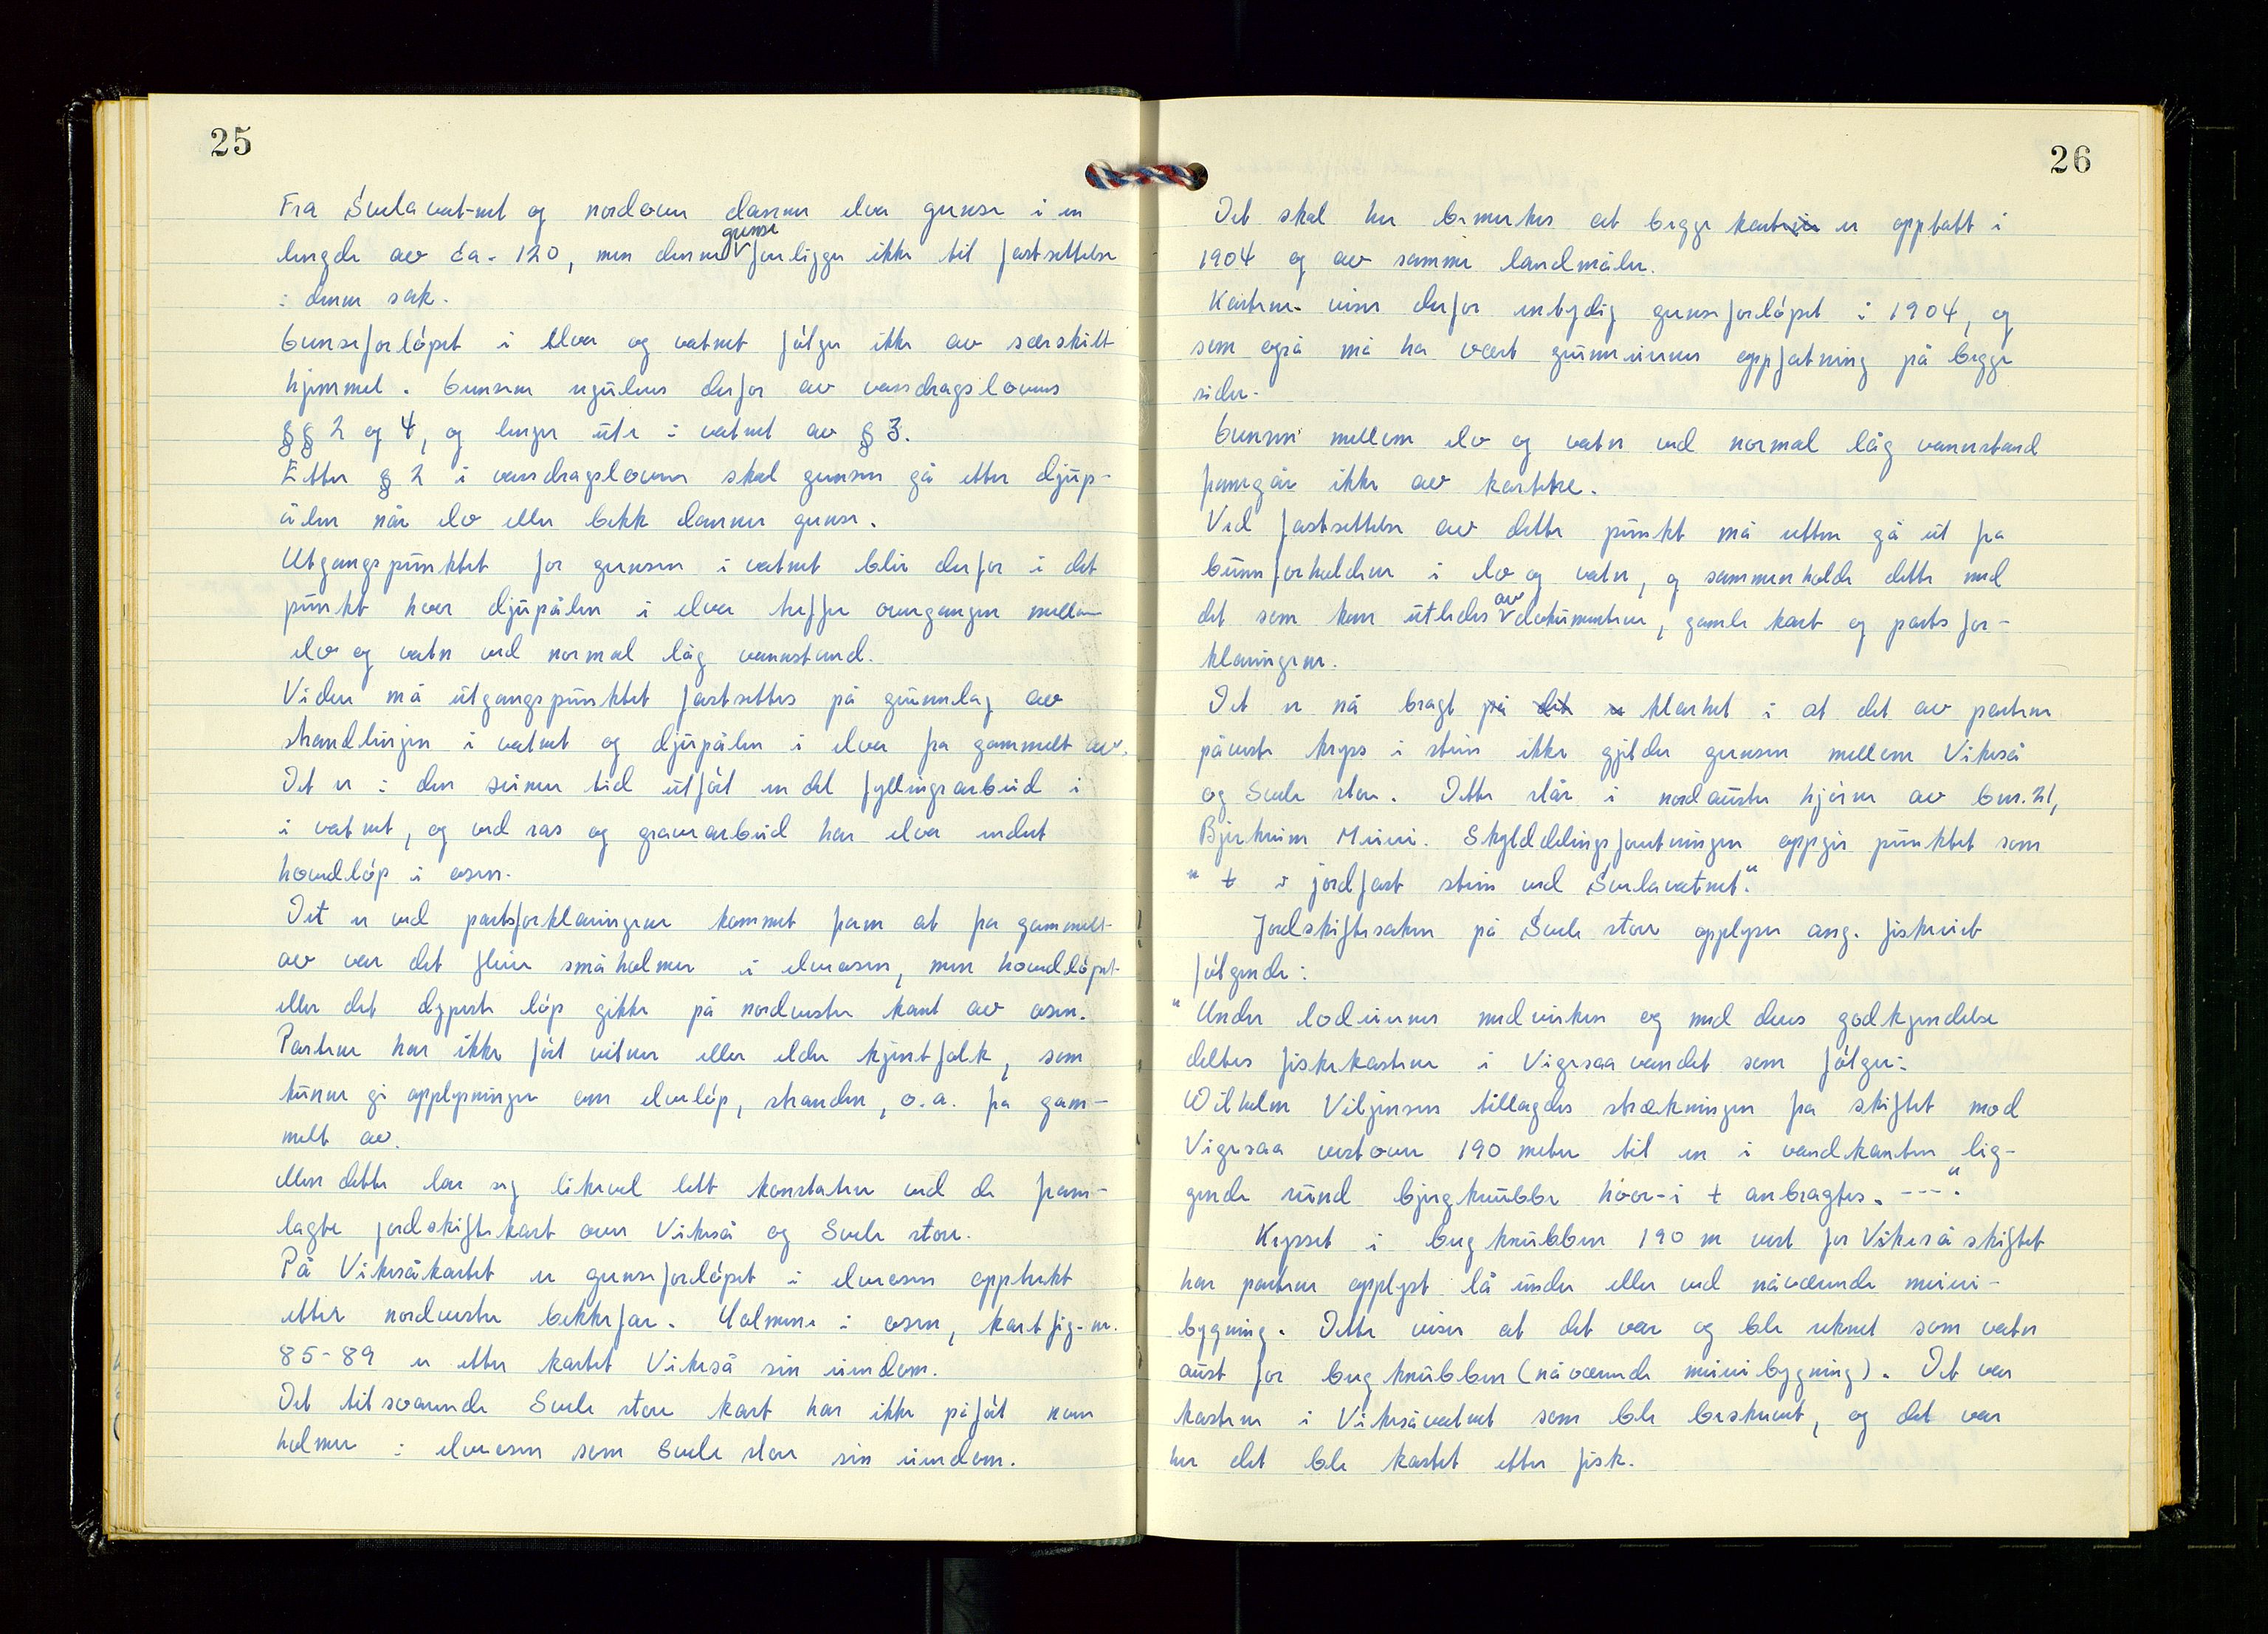 25
Fra Svelavatnet og nordover danner elva grense i en
lengde av ca. 120, men denne grense foreligger ikke til fastsettelse
i denne sak.
Grenseforløpet i elva og vatnet følger ikke av særskilt
hjemmel. Grensen reguleres derfor av vassdragslovens
§§ 2 og 4, og lenger ute i vatnet av § 3.
Etter § 2 i vassdragsloven skal grensen gå etter djup-
ålen når elv eller bekk danner grense.
Utgangspunktet for grensen i vatnet blir derfor i det
punkt hvor djupålen i elva treffer overgangen mellom
elv og vatn ved normal låg vannstand.
Videre må utgangspunktet fastsettes på grunnlag av
strandlinjen i vatnet og djupålen i elva fra gammelt av.
Det er i den seinere tid utført en del fyllingsarbeid i
i vatnet, og ved ras og gravearbeid har elva endret
hovedløp i osen.
Det er ved partsforklaringene kommet fram at fra gammelt
av var det fleire småholmer i elveosen, men hovedløpet
eller det dypeste løp gikk på nordvestre kant av osen.
Partene har ikke ført vitner eller eldre kjentfolk, som
kunne gi opplysninger om elveløp, stranden, o.a. fra gam-
melt av.
Men dette lar seg likevel lett konstatere ved de fram-
lagte jordskiftekart over Vikeså og Svele store.
På Vikesåkartet er grenseforløpet i elveosen opptrekt
etter nordvestre bekkefar. Holmene i osen, kartfig.nr.
85-89 er etter kartet Vikeså sin eiendom.
Det tilsvarende Svele store kart har ikke påført noen
holmer i elveosen som Svele store sin eiendom.
26
Det skal her bemerkes at begge kartene er opptatt i
1904 og av samme landmåler.
Kartene viser derfor entydig grenseforløpet i 1904, og
som også må ha vært grunneiernes oppfatning på begge
sider.
Grensen mellom elv og vatn ved normal låg vannstand
framgår ikke av kartene.
Ved fastsettelse av dette punkt må retten gå ut fra
bunnforholdene i elv og vatn, og sammenholde dette med
det som kan utledes av dokumentene, gamle kart og partsfor-
klaringene.
Det er nå bragt på det e klarhet i at det av partene
påviste kryss i stein ikke gjelder grensen mellom Vikeså
og Svele store. Dette står i nordaustre hjørne av bnr. 21,
Bjerkreim Meieri. Skylddelingsforretningen oppgir punktet som
" + i jordfast stein ved Svelavatnet."
Jordskiftesaken på Svele store opplyser ang. fiskeriet
følgende:
"Under lodeiernes medvirken og med deres godkjendelse
deltes fiskekastene i Vigesaavandet som følger:
Wilhelm Viljensen tillagdes strækningen fra skiftet mod
Vigesaa vestover 190 meter til en i vandkanten lig-
gende rund bjergknubbe hvor-i + anbragtes. ---."
Krysset i bergknubben 190 m vest for Vikesåskiftet
har partene opplyst lå under eller ved nåværende meieri-
bygning. Dette viser at det var og ble reknet som vatn
aust for bergknubben (nåværende meieribygning). Det var
kastene i Vikesåvatnet som ble beskrevet, og det var
her det ble kastet etter fisk.